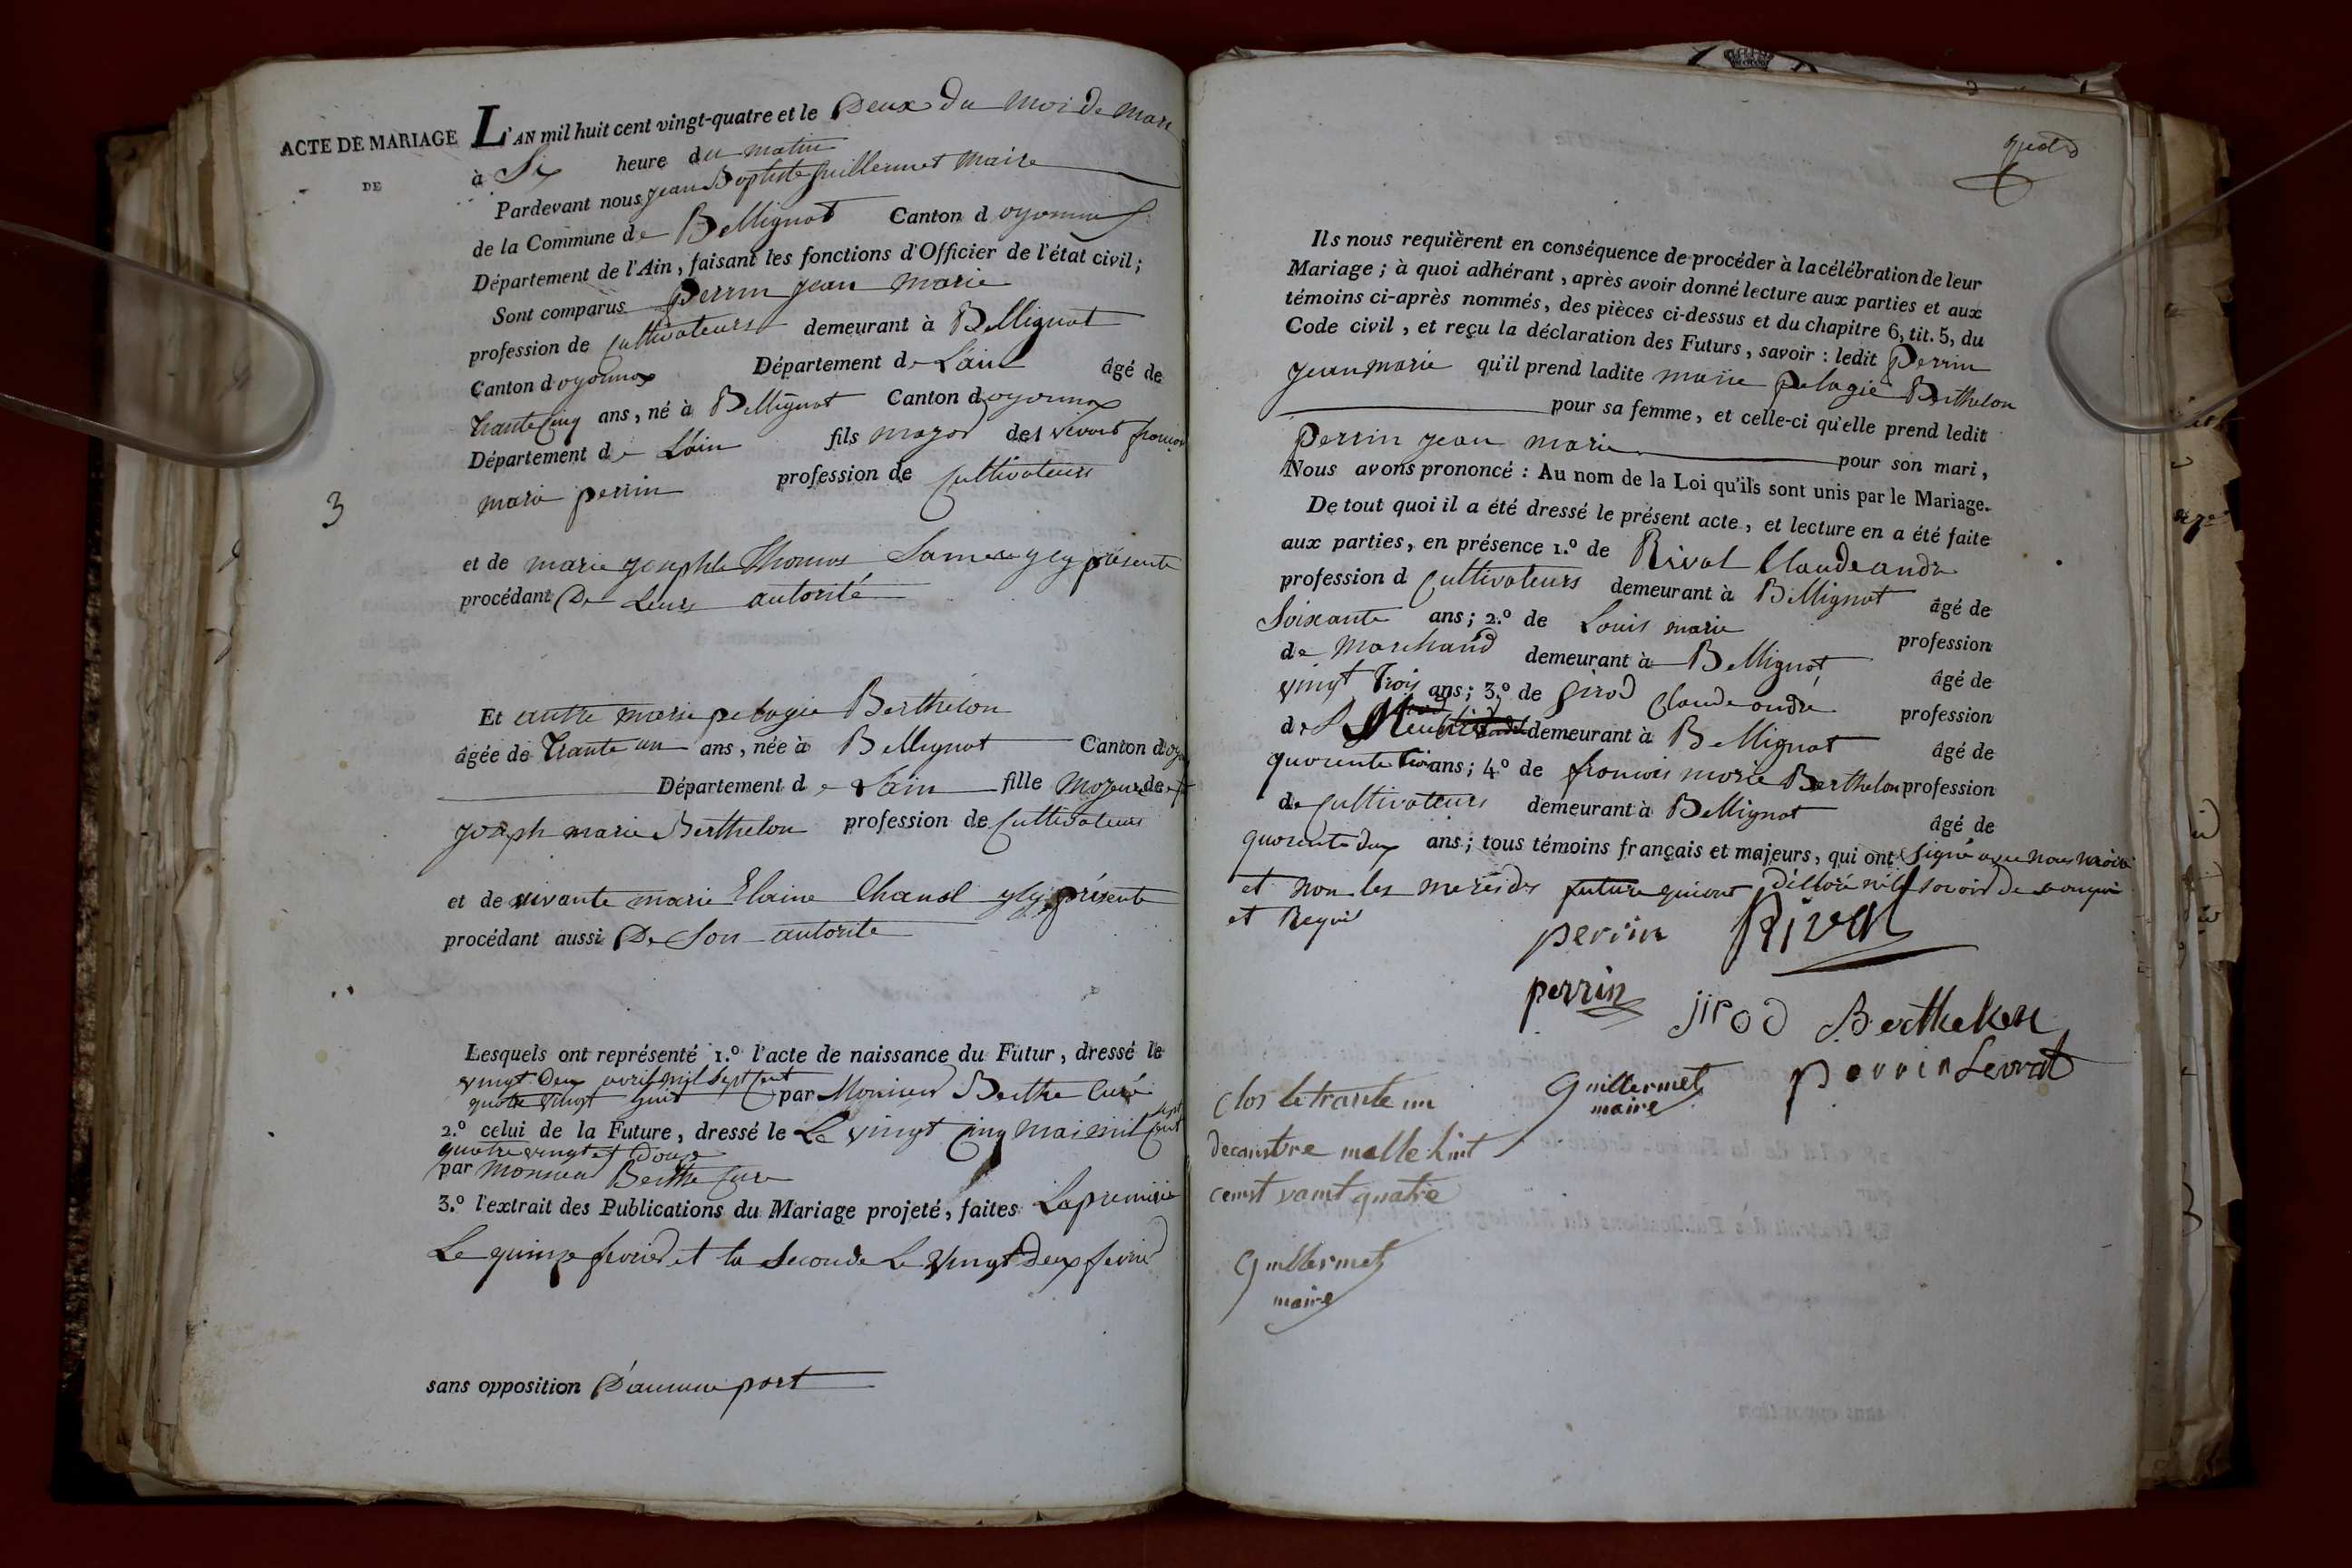 ACTE DE MARIAGE
DE
3
L'AN mil huit cent vingt-quatre et le Deux du moi de mars
à Six heure du matin
Pardevant nous jean Baptiste guillermet maire
de la Commune de Bellignat Canton d oyonnax
Département de l'Ain, faisant les fonctions d'Officier de l'état civil;
Sont comparus perrin jean marie
profession de Cultivateurs demeurant à Bellignat
Canton d oyonnax Département de L'ain âgé de
trante Cinq ans, né à Bellignat Canton d oyonnax
Département de L'ain fils major des vivant francois
marie perrin profession de Cultivateurs
et de marie josephte Thomas Sa mere ycy présente
procédant De Leurs autorité
Et autre marie pelagie Berthelon
âgée de trante un ans, née à Bellignat Canton d oyo
Département de Lain fille majeure de
joseph marie Berthelon profession de Cultivateurs
et de vivante marie Elaine Chanal ycy présente
procédant aussi De Son autorite
Lesquels ont représenté 1.º l'acte de naissance du Futur, dressé le
vingt Deux avril mil Sept Cent
quatre vingt huit par Monsieur Berthe Curé
2.º celui de la Future, dressé le Le vingt Cinq mai mil Sept Cent
quatre vingt et Douze
par Monsieur Berthe Cure
3.º l'extrait des Publications du Mariage projeté, faites La premiere
Le quinze fevrier et la Seconde Le vingt Deux fevrier
sans opposition D'aucune part
Ils nous requièrent en conséquence de procéder à la célébration de leur
Mariage; à quoi adhérant, après avoir donné lecture aux parties et aux
témoins ci-après nommés, des pièces ci-dessus et du chapitre 6, tit. 5, du
Code civil, et reçu la déclaration des Futurs, savoir: ledit Perrin
jean marie qu'il prend ladite marie pelagie Berthelon
pour sa femme, et celle-ci qu'elle prend ledit
perrin jean marie pour son mari,
Nous avons prononcé: Au nom de la Loi qu'ils sont unis par le Mariage.
De tout quoi il a été dressé le présent acte, et lecture en a été faite
aux parties, en présence 1.º de Rival Claude andre
profession d Cultivateurs demeurant à Bellignat âgé de
Soixante ans; 2.º de Louis marie profession
de Marchand demeurant à Bellignat âgé de
vingt trois ans; 3.º de girod Claude andré profession
de demeurant à Bellignat âgé de
quarente trois ans; 4.º de francois marie Berthelon profession
de Cultivateurs demeurant à Bellignat âgé de
quarente deux ans; tous témoins français et majeurs, qui ont Signé avec nous maire
et non les meres des future quiont déclaré ne savoir de
et Requis
perrin Rival
perrin jirod Berthelon
Guillermet perrin Levrat
maire
Clos le trante un
decenbre mille huit
censt vaint quatre
Guillermet
maire